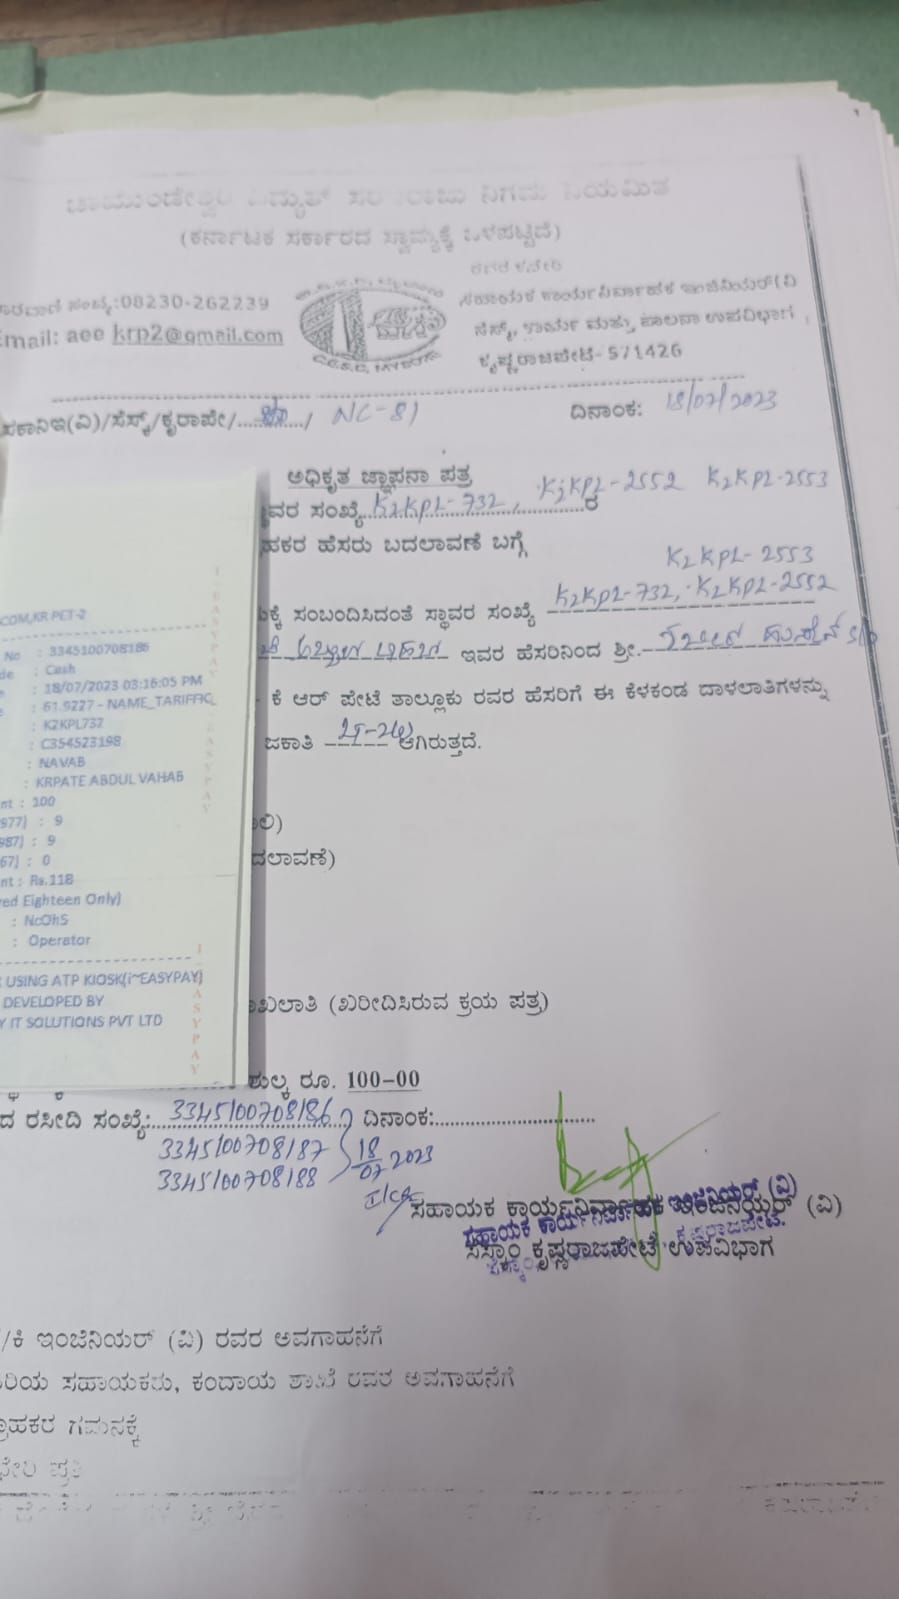 ಚಾಮುಂಡೇಶ್ವರಿ ವಿದ್ಯುತ್ ಸರಬರಾಜು ನಿಗಮ ನಿಯಮಿತ
(ಕರ್ನಾಟಕ ಸರ್ಕಾರದ ಸ್ವಾಮ್ಯಕ್ಕೆ ಒಳಪಟ್ಟಿದೆ)
08230-262239
mail: aee krp2@gmail.com
C.E.S.C, MYSORE
ಸಹಾಯಕ ಕಾರ್ಯನಿರ್ವಾಹಕ ಇಂಜಿನಿಯರ್(ವಿ
ಸೆಸ್ಕ್, ಕಾರ್ಯ ಮತ್ತು ಪಾಲನಾ ಉಪವಿಭಾಗ,
ಕೃಷ್ಣರಾಜಪೇಟೆ-571426
ಸಕಾನಿಇ(ವಿ)/ಸೆಸ್ಕ್/ಕೃರಾಪೇ/ / NC-81 ದಿನಾಂಕ: 18/07/2023
ಅಧಿಕೃತ ಜ್ಞಾಪನಾ ಪತ್ರ
ವರ ಸಂಖ್ಯೆ K2KPL-732, K2KPL-2552 K2KPL-2553 ರ
ಹಕರ ಹೆಸರು ಬದಲಾವಣೆ ಬಗ್ಗೆ
K2KPL-2553
ಕ್ಕೆ ಸಂಬಂದಿಸಿದಂತೆ ಸ್ಥಾವರ ಸಂಖ್ಯೆ K2KPL-732, K2KPL-2552
ಇವರ ಹೆಸರಿನಿಂದ ಶ್ರೀ. S/o
ಕೆ ಆರ್ ಪೇಟೆ ತಾಲ್ಲೂಕು ರವರ ಹೆಸರಿಗೆ ಈ ಕೆಳಕಂಡ ದಾಳಲಾತಿಗಳನ್ನು
ಜಕಾತಿ ಆಗಿರುತ್ತದೆ.
ದಲಾವಣೆ)
ಖಲಾತಿ (ಖರೀದಿಸಿರುವ ಕ್ರಯ ಪತ್ರ)
COM,KR PET-2
No : 3345100708186
de : Cash
: 18/07/2023 03:16:05 PM
: 61.9227 - NAME_TARIFFIC
: K2KPL732
: C354523198
: NAVAB
: KRPATE ABDUL VAHAB
nt : 100
977) : 9
987) : 9
67) : 0
nt : Rs.118
red Eighteen Only)
: NcOhS
: Operator
USING ATP KIOSK(i~EASYPAY)
DEVELOPED BY
Y IT SOLUTIONS PVT LTD
I-EASYPAY
ಶುಲ್ಕ ರೂ. 100-00
ದ ರಸೀದಿ ಸಂಖ್ಯೆ: 3345100708186 ದಿನಾಂಕ:
3345100708187 18/07 2023
3345100708188
ಸಹಾಯಕ ಕಾರ್ಯನಿರ್ವಾಹಕ ಇಂಜಿನಿಯರ್ (ವಿ)
ಸಹಾಯಕ ಕಾರ್ಯನಿರ್ವಾಹಕ ಇಂಜಿನಿಯರ್ (ವಿ)
ಕೃಷ್ಣರಾಜಪೇಟೆ.
ಸೆಸ್ಕಾಂ ಕೃಷ್ಣರಾಜಪೇಟೆ ಉಪವಿಭಾಗ
/ಕಿ ಇಂಜಿನಿಯರ್ (ವಿ) ರವರ ಅವಗಾಹನೆಗೆ
ರಿಯ ಸಹಾಯಕರು, ಕಂದಾಯ ಶಾಖೆ ರವರ ಅವಗಾಹನೆಗೆ
ಗ್ರಾಹಕರ ಗಮನಕ್ಕೆ
ಚೇರಿ ಪ್ರತಿ